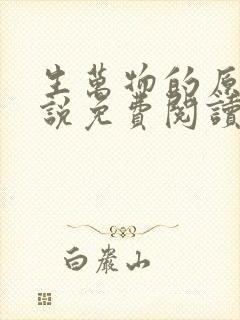 生萬物的原
說免費閱讀
白巖山